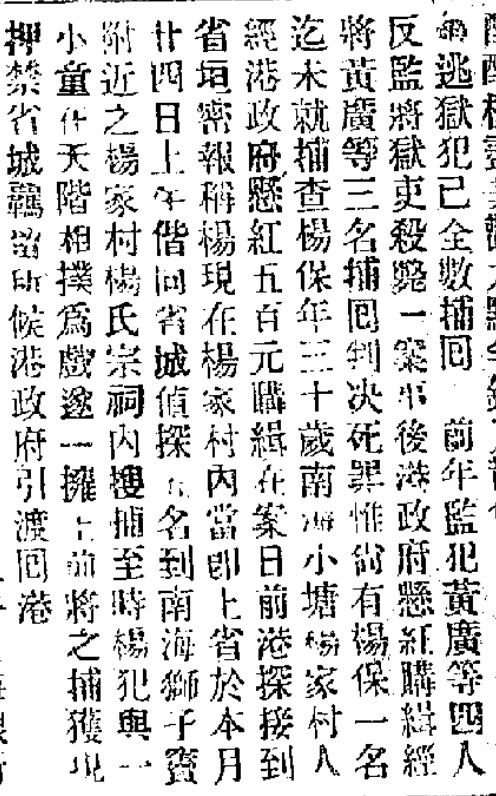 逃獄犯已全數捕囘　前年監犯黃廣等四人
反監將獄吏殺斃一案事後港政府懸紅購緝經
將黃廣等三名捕囘判决死罪惟尙有楊保一名
迄未就捕查楊保年三十歲南海小塘楊家村人
經港政府懸紅五百元購緝在案日前港探接到
省垣密報稱楊現在楊家村內當卽上省於本月
廿四日上午偕同省城偵探五名到南海獅子竇
附近之楊家村楊氏宗祠內搜捕至時楊犯與一
小童在天階相撲爲戲遂一擁上前將之捕獲現
押禁省城羈留所候港政府引渡囘港